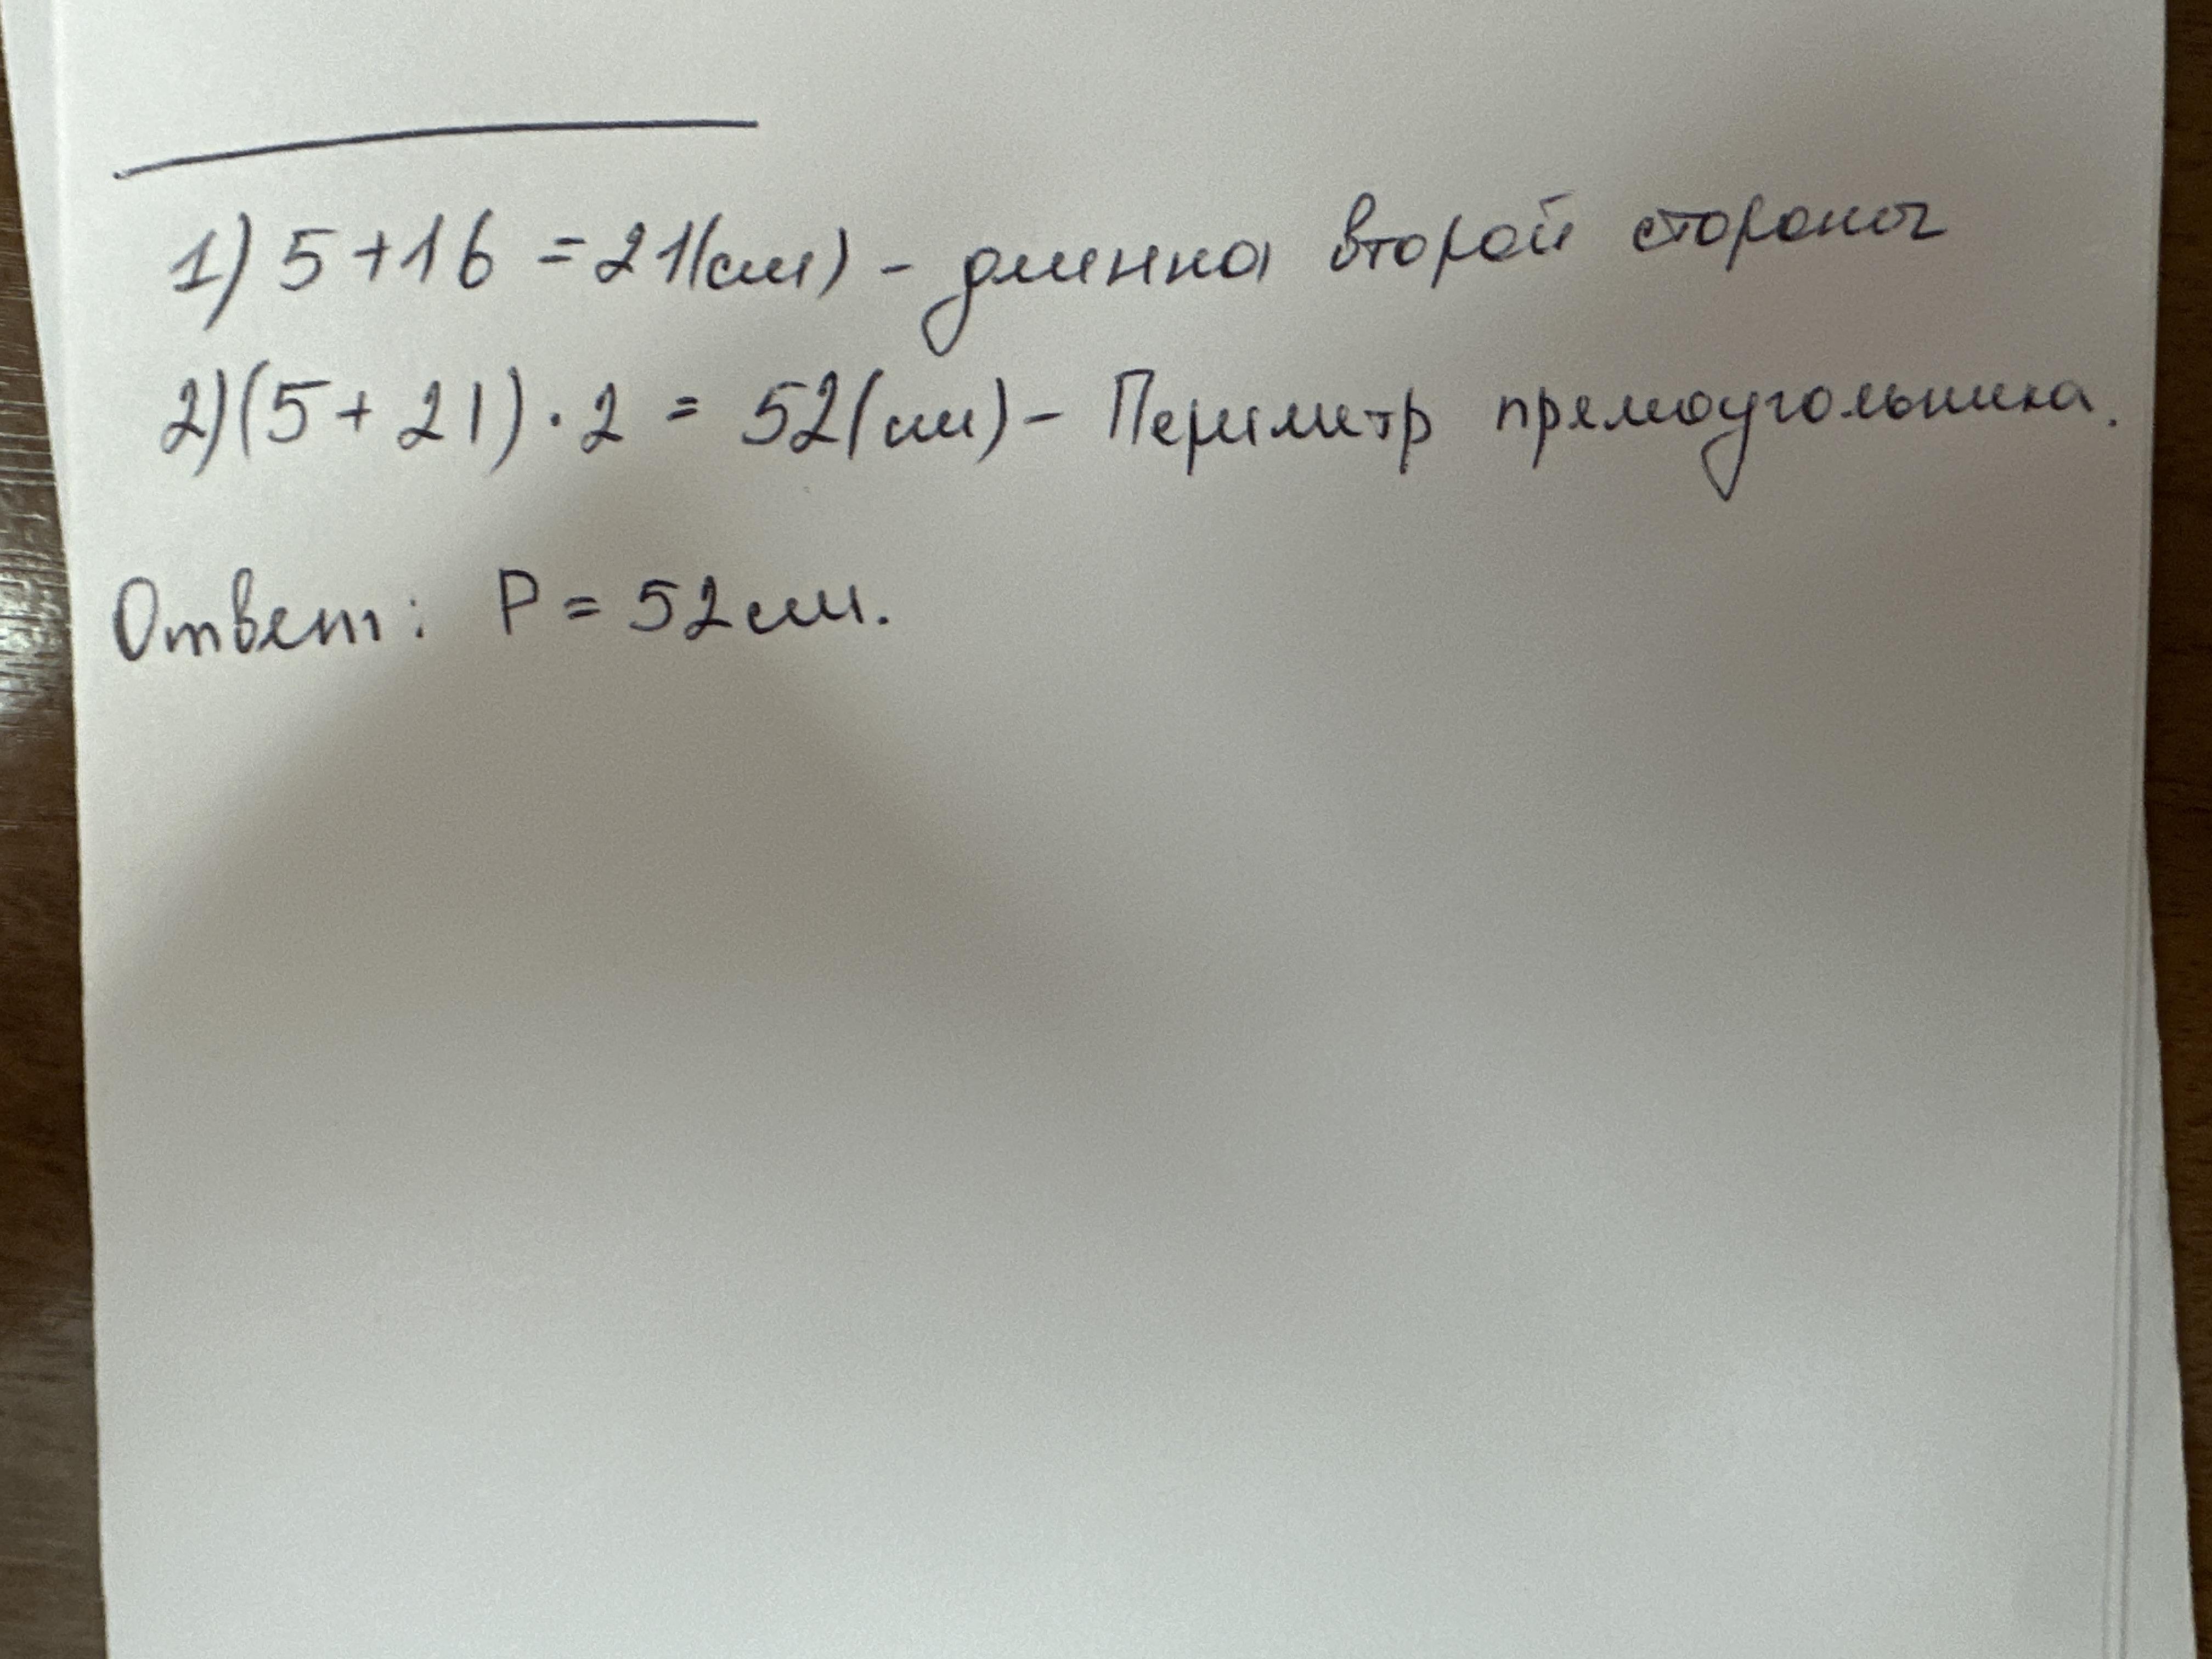 1) 5+16 = 21(см) - длинна второй стороны
2) (5+21)·2 = 52(см) - Периметр прямоугольника.
Ответ: P = 52см.